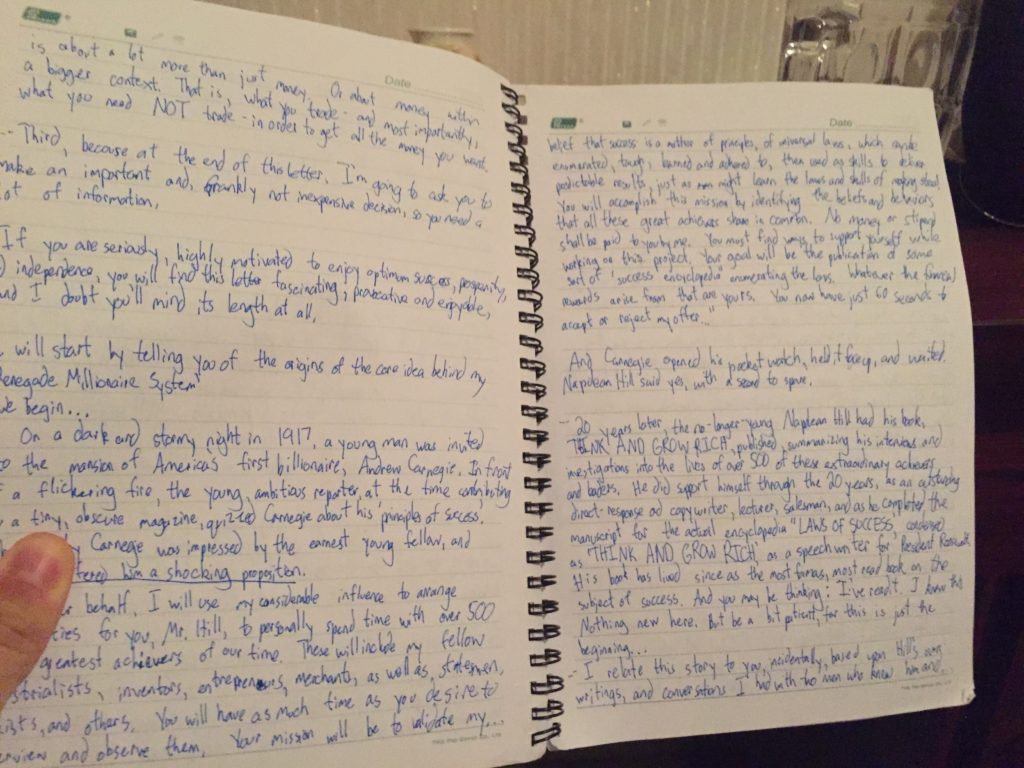 Date
is about a lot more than just money. Or about money within
a bigger context. That is, what you trade - and most importantly,
what you need NOT trade - in order to get all the money you want.
-- Third, because at the end of this letter, I'm going to ask you to
make an important and, frankly not inexpensive decision, so you need a
lot of information,
If you are seriously, highly motivated to enjoy optimum success, prosperity,
independence, you will find this letter fascinating, provocative and enjoyable,
and I doubt you'll mind its length at all.
will start by telling you of the origins of the core idea behind my
Renegade Millionaire System"
we begin...
On a dark and stormy night in 1917, a young man was invited
to the mansion of America's first billionaire, Andrew Carnegie. In front
of a flickering fire, the young, ambitious reporter, at the time contributing
a tiny, obscure magazine, quizzed Carnegie about his principles of success.
Carnegie was impressed by the earnest young fellow, and
him a shocking proposition.
behalf. I will use my considerable influence to arrange
for you, Mr. Hill, to personally spend time with over 500
greatest achievers of our time. These will include my fellow
inventors, entrepreneurs, merchants, as well as, statesmen,
and others. You will have as much time as you desire to
and observe them. Your mission will be to validate my....
Date
belief that success is a matter of principles, of universal laws, which can be
enumerated, taught, learned and adhered to, then used as skills to deliver
predictable results, just as men might learn the laws and skills of making steel.
You will accomplish this mission by identifying the beliefs and behaviors
that all these great achievers share in common. No money or stipend
shall be paid to you by me. You must find ways to support yourself while
working on this project. Your goal will be the publication of some
sort of 'success encyclopedia' enumerating the laws. Whatever the financial
rewards arise from that are yours. You now have just 60 seconds to
accept or reject my offer..."
And Carnegie opened his pocket watch, held it face up, and waited.
Napolean Hill said yes, with a second to spare.
-- 20 years later, the no-longer-young Naplean Hill had his book,
THINK AND GROW RICH, published, summarizing his interviews and
investigations into the lives of over 500 of these extraordinary achievers
and leaders. He did support himself through the 20 years, as an outstanding
direct-response ad copywriter, lecturer, salesman, and as he completed the
manuscript for the actual encyclopedia "LAWS OF SUCCESS, condensed
as "THINK AND GROW RICH", as a speech writer for President Roosevelt.
His book has lived since as the most famous, most read book on the
subject of success. And you may be thinking: I've read it. I know this
Nothing new here. But be a bit patient, for this is just the
beginning...
-- I relate this story to you, incidentally, based upon Hill's own
writings, and conversations I had with two men who knew him and...